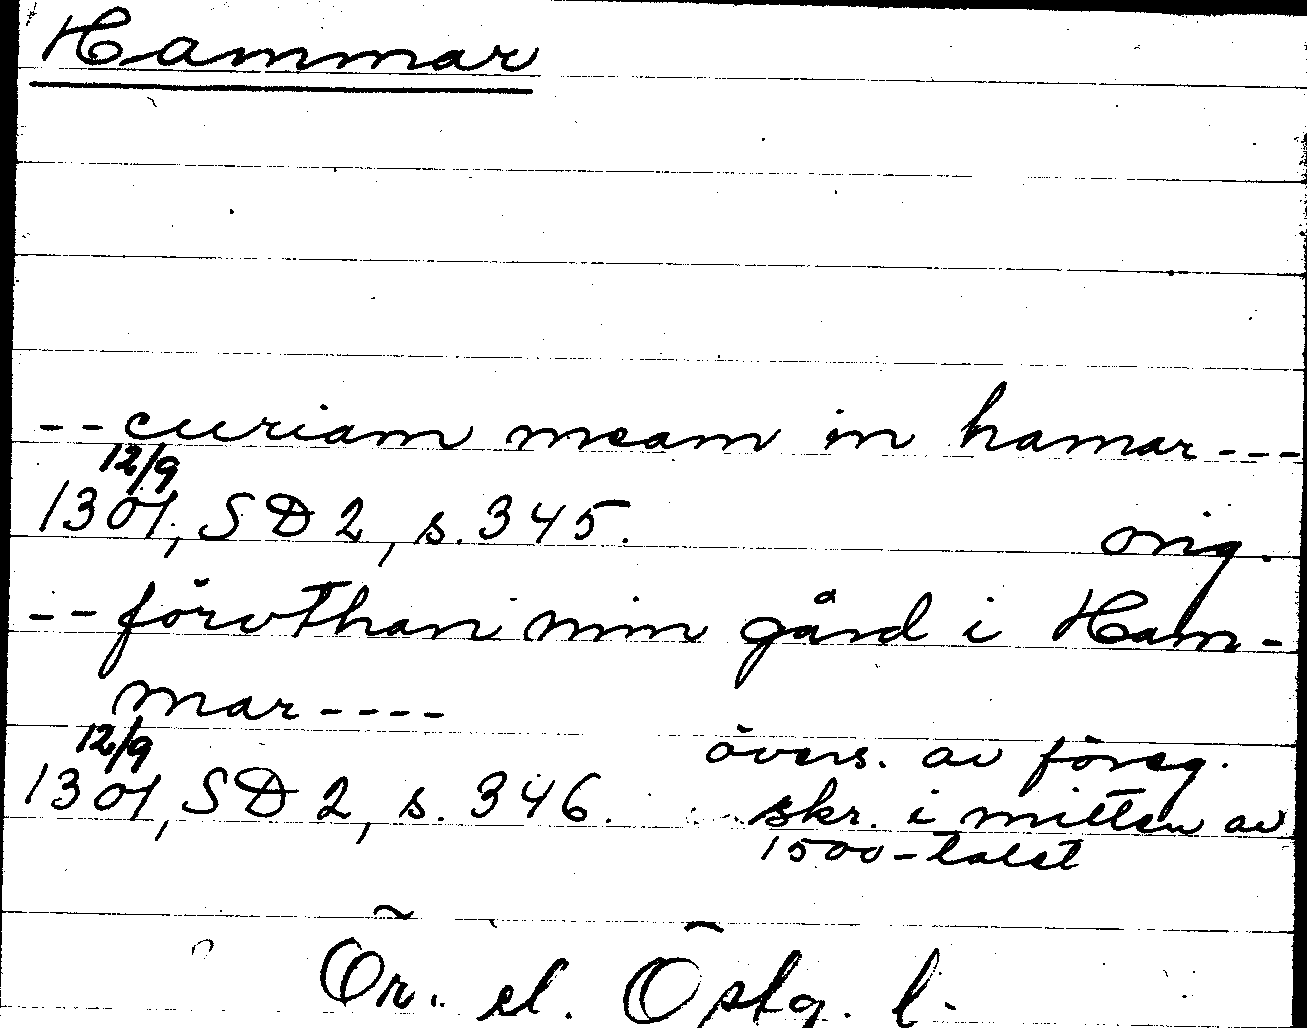 Hammar
-- curiam meam in hamar ---
12/9
1301, SD 2, s. 345.
orig.
-- förvthan min gård i Ham-
mar ----
12/9
1301, SD 2, s. 346.
övers. av föreg.
skr. i mitten av
1500-talet
Ör. el. Östg. l.